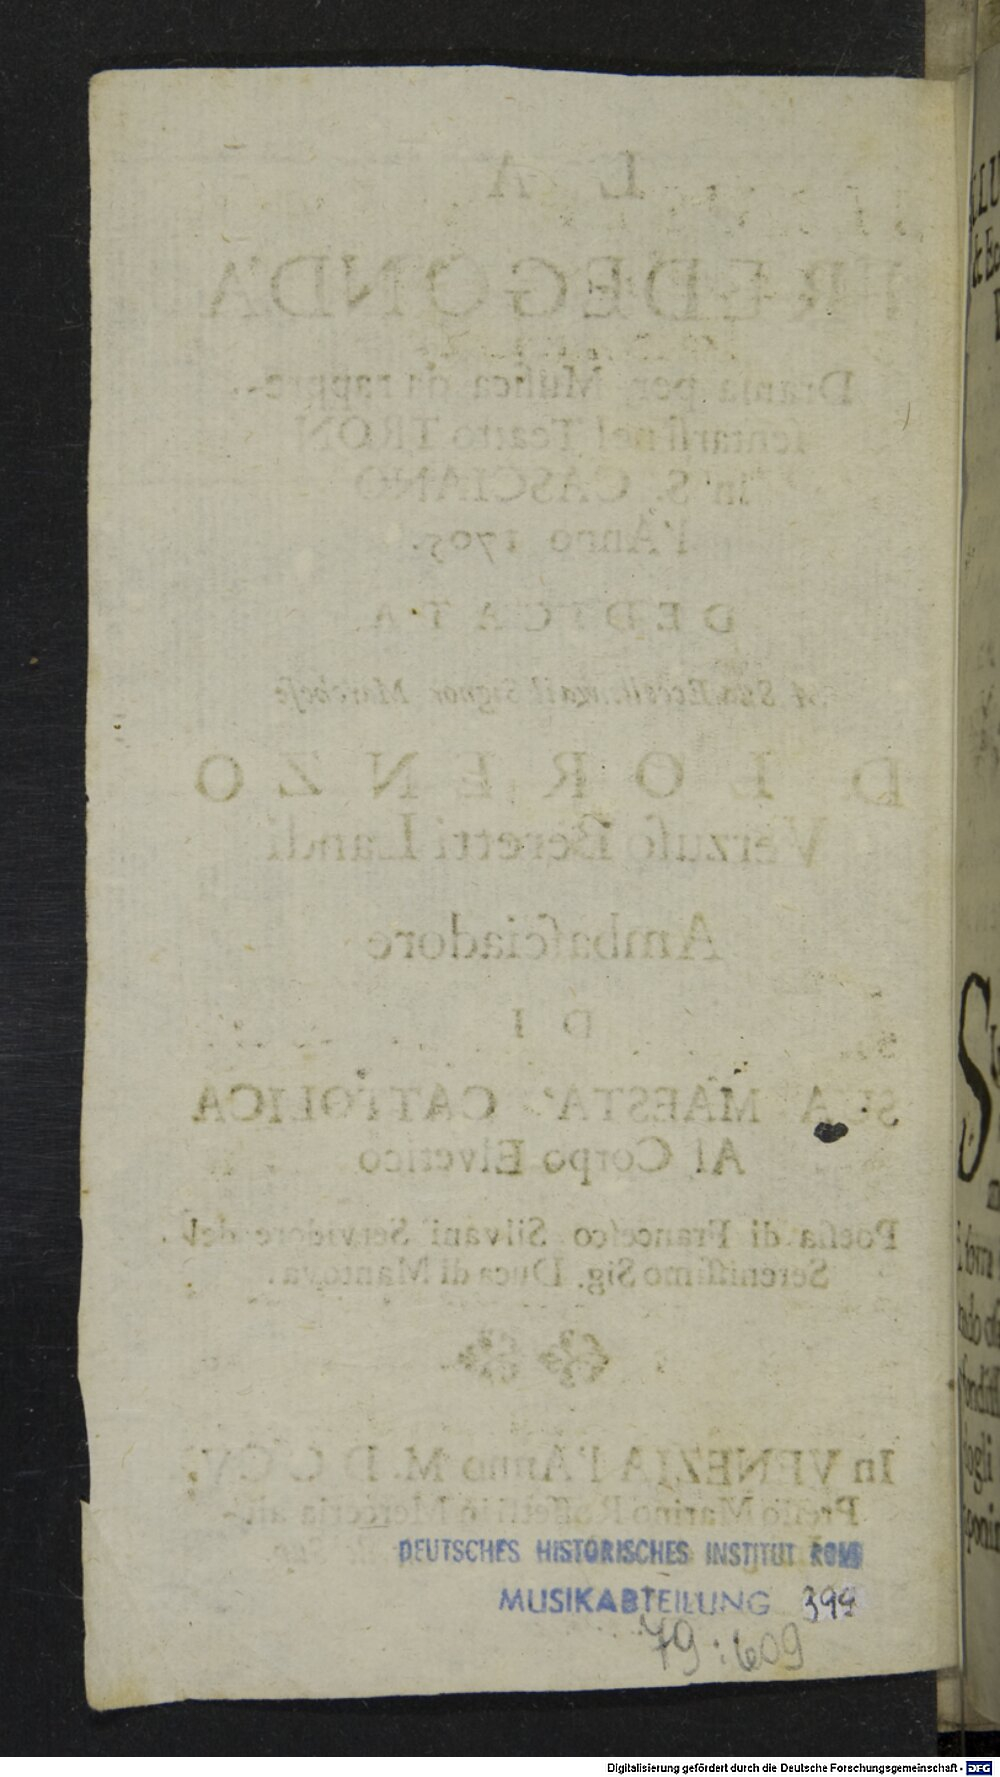 LA
FREDEGONDA
Drama per Musica da rappre-
sentarsi nel Teatro TRON
in S. CASCIANO
l'Anno 1705.
DEDICATA
A Sua Eccell. mail Signor Marchese
D. LORENZO
Verzuso Beretti Landi
Ambasciadore
DI
SUA MAESTA' CATTOLICA
Al Corpo Elvetico
Poesia di Francesco Silvani Servidore del
Serenissimo Sig. Duca di Mantova.
In VENEZIA l'Anno M. D CCV.
Presso Marino Rossetti in Merceria all'-
DEUTSCHES HISTORISCHES INSTITUT ROM
MUSIKABTEILUNG 399
79:609
Digitalisierung gefördert durch die Deutsche Forschungsgemeinschaft - DFG